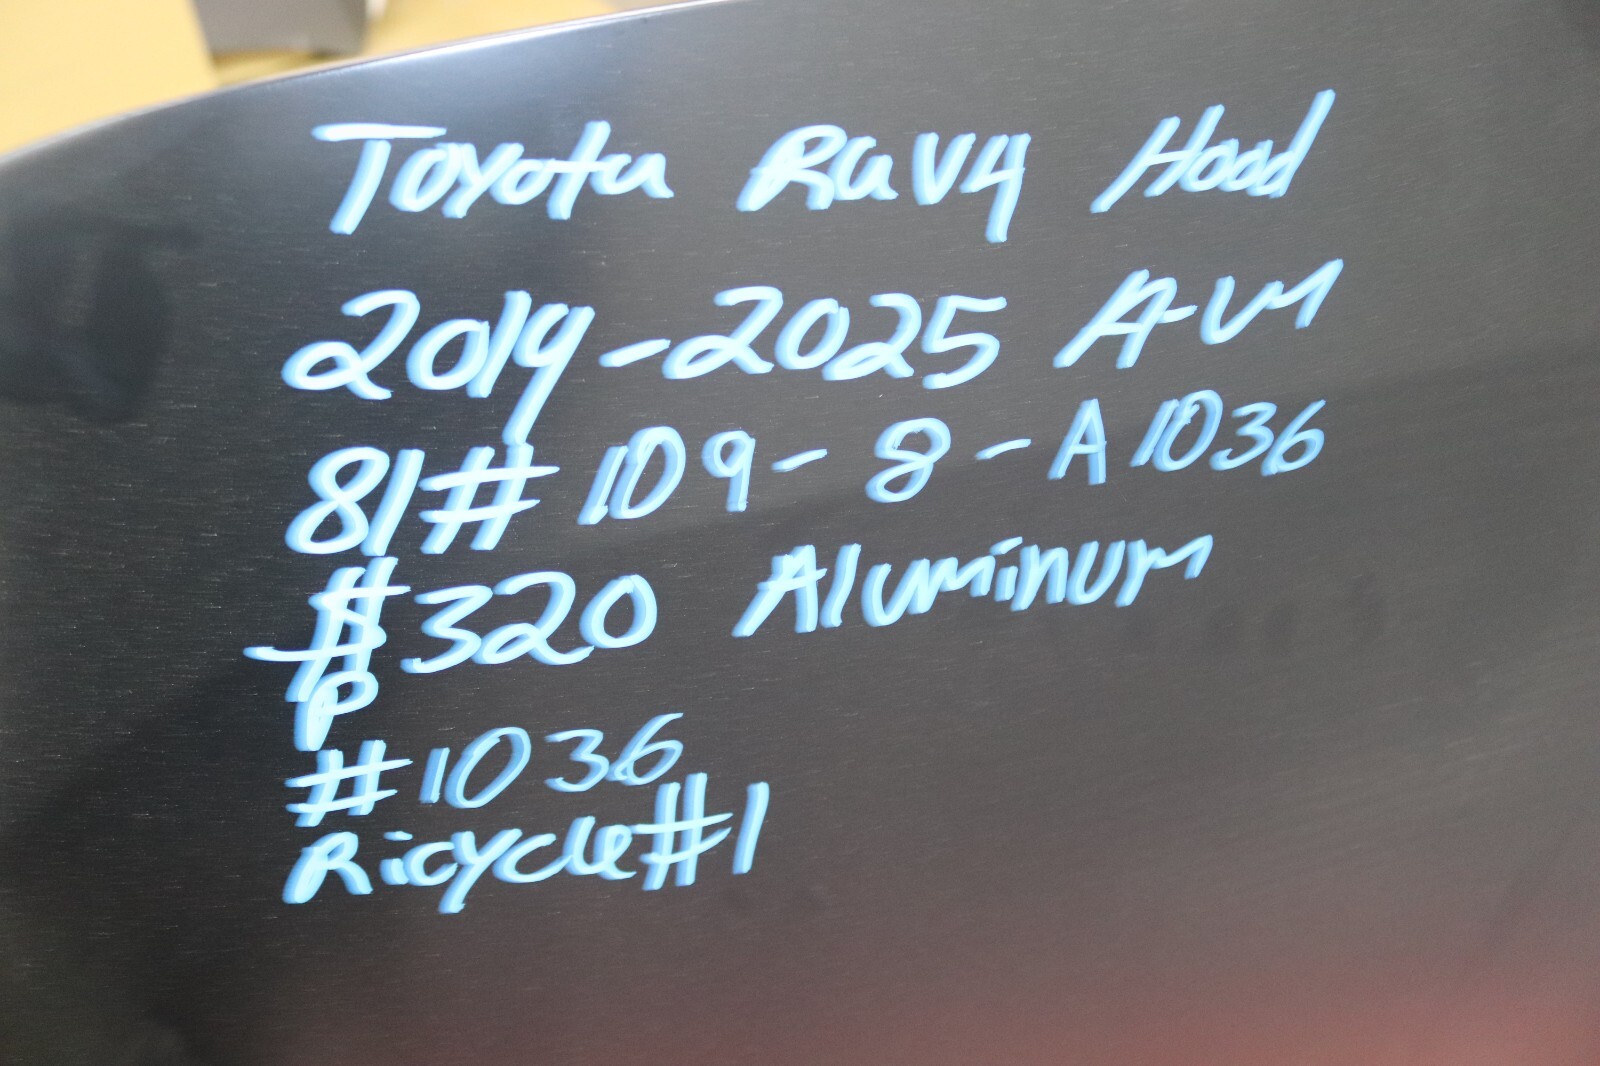 Toyota Rav4 Hood
2019-2025 A-M
81# 109-8-A1036
#320 Aluminum
P
#1036
Ricycle#1